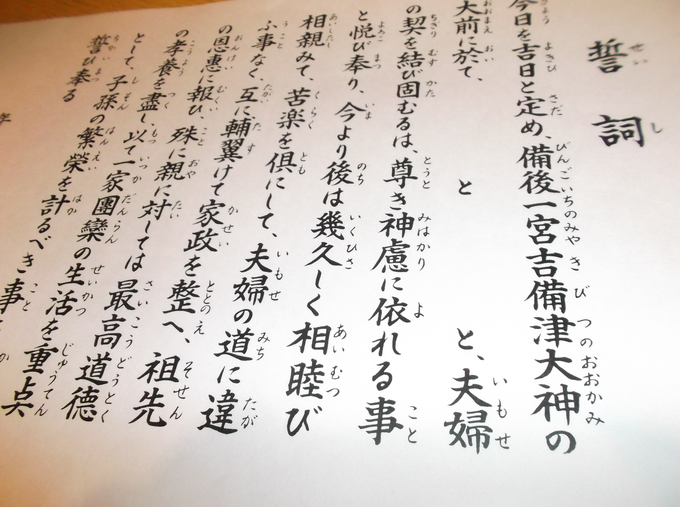 誓詞
今日を吉日と定め、備後一宮吉備津大神の
大前に於て、　と　と、夫婦
の契を結び固むるは、尊き神慮に依れる事
と悦び奉り、今より後は幾久しく相睦び
相親みて、苦楽を倶にして、夫婦の道に違
ふ事なく、互に輔翼けて家政を整へ、祖先
の恩恵に報ひ、殊に親に対しては最高道徳
の孝養を盡し、以て一家團欒の生活を重点
として、子孫の繁榮を計るべき事
誓ひ奉る
年